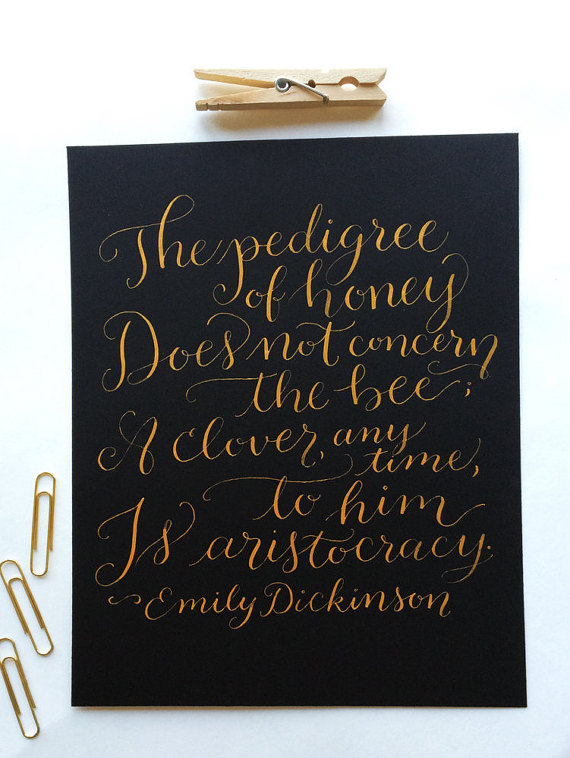 The pedigree
of honey
Does not concern
the bee;
A clover, any
time,
to him
Is aristocracy.
Emily Dickinson